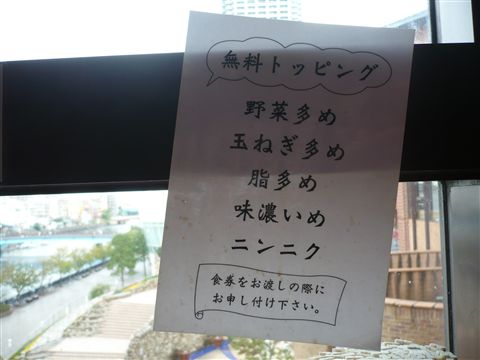 無料トッピング
野菜多め
玉ねぎ多め
脂多め
味濃いめ
ニンニク
食券をお渡しの際に
お申し付け下さい。